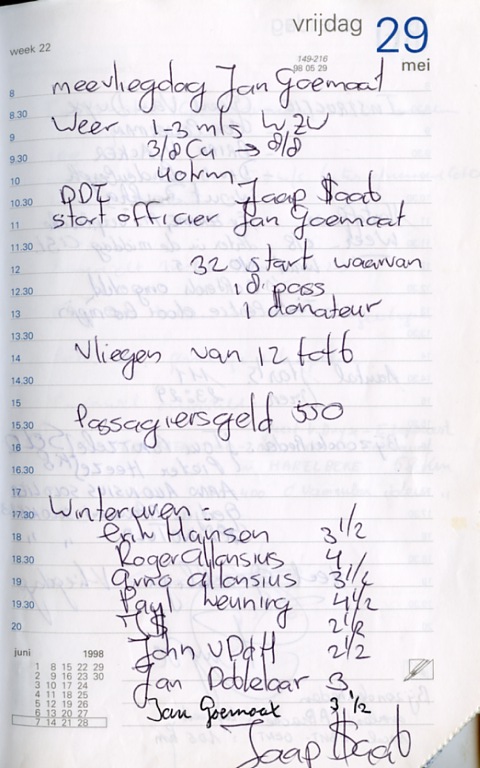 vrijdag 29
week 22
mei
149-216
98 05 29
8 meevliegdag Jan Goemaat
8.30
Weer 1-3 m/s WZW
9
3/8 Cu → 8/8
9.30
40 km
10
DDI Jaap $aab
10.30
startofficier Jan Goemaat
11
11.30
32 start waarvan
12
18 pass
12.30
1 donateur
13
13.30
Vliegen van 12 tot 6
14
14.30
15
Passagiersgeld 550
15.30
16
16.30
17
17.30 Winteruren =
18 Erik Hansen 3 1/2
18.30 Roger Allonsius 4
19 Arno Allonsius 3 1/2
19.30 Paul Leuning 4 1/2
J$ 2 1/2
20
John v Datt 2 1/2
Jan Dobbelaar 3
Jan Goemaat 3 1/2
Jaap $aab
juni 1998
1 8 15 22 29
2 9 16 23 30
3 10 17 24
4 11 18 25
5 12 19 26
6 13 20 27
7 14 21 28